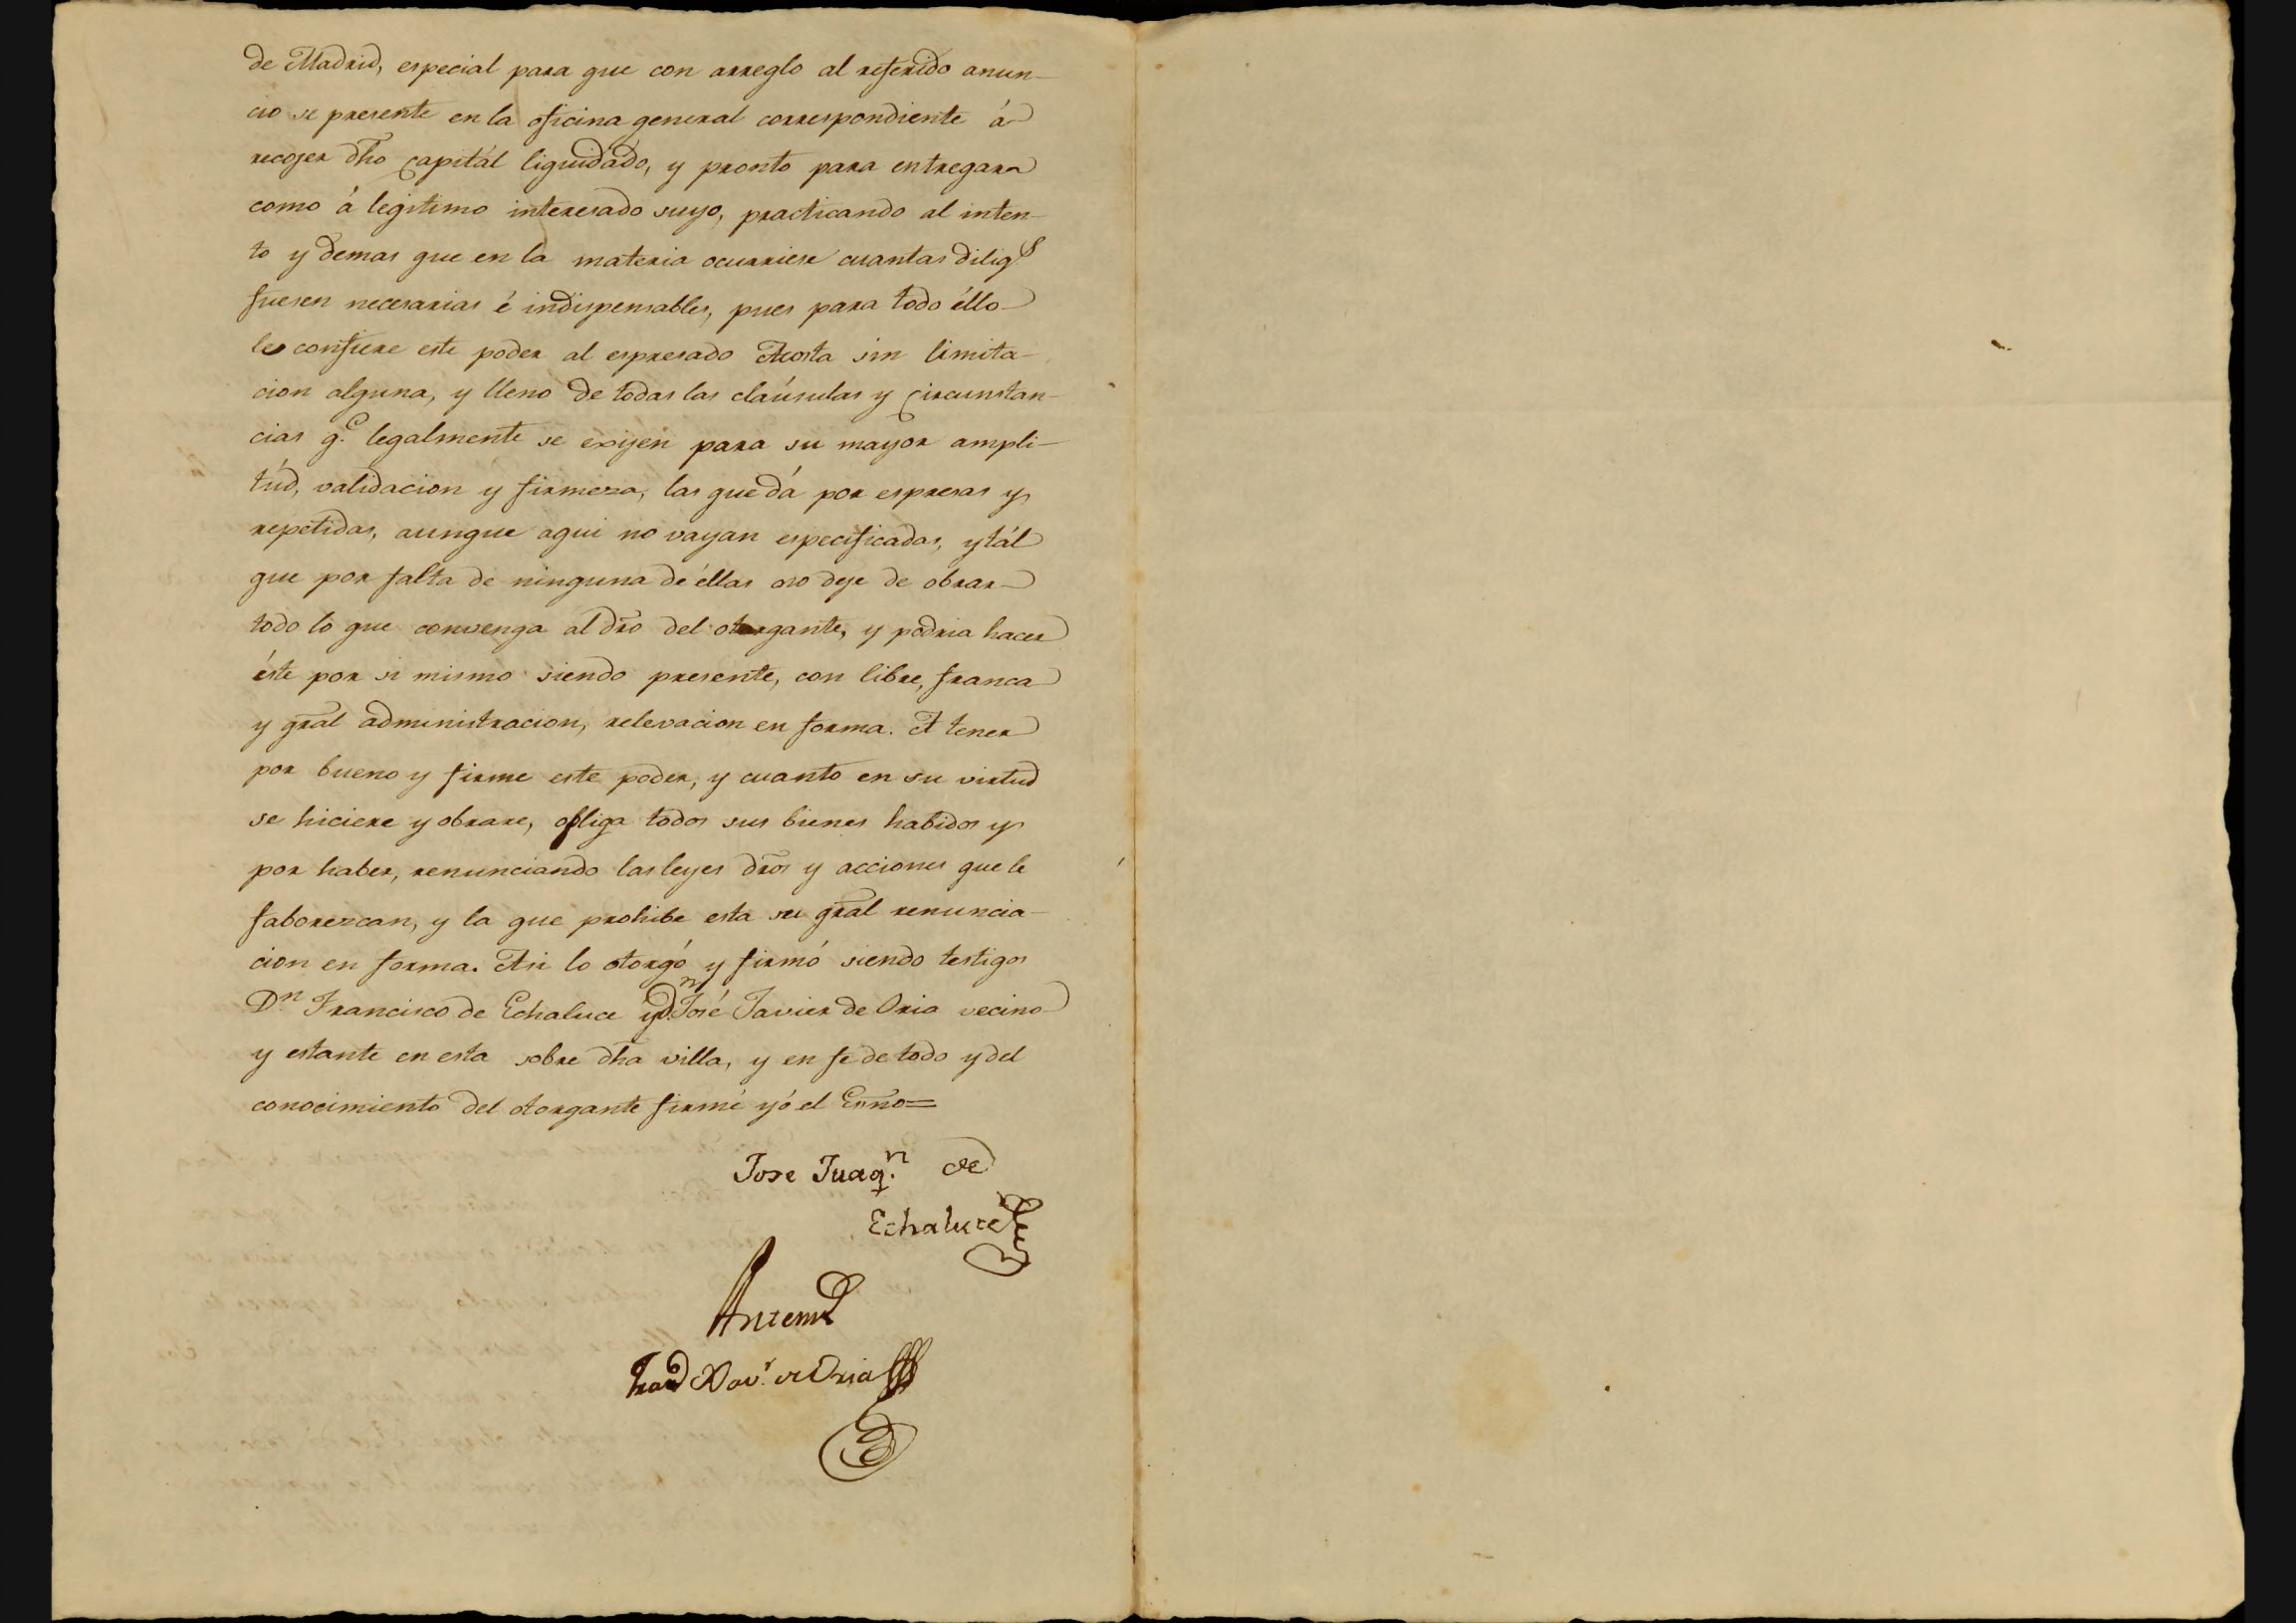 de Madrid, especial para que con arreglo al referido anun-
cio se presente en la oficina general correspondiente á
recojer dho capitál liquidado, y pronto para entregar
como á legitimo interesado suyo, practicando al inten-
to y demas que en la materia ocurriese cuantas dilig.s
fuesen necesarias é indispensables, pues para todo éllo
le confiere este poder al espresado Acosta sin limita-
cion alguna, y lleno de todas las claúsulas y circunstan-
cias q.e legalmente se exijen para su mayor ampli-
túd, validacion y firmeza, las que dá por espresas y
repetidas, aunque aqui no vayan especificadas, y tál
que por falta de ninguna de éllas no deje de obrar
todo lo que convenga al dro del otorgante, y podria hacer
éste por si mismo siendo presente, con libre, franca
y gral administracion, relevacion en forma. A tener
por bueno y firme este poder, y cuanto en su virtud
se hiciere y obrare, obliga todos sus bienes habidos y
por haber, renunciando las leyes dros y acciones que le
faborezcan, y la que prohibe esta su gral renuncia-
cion en forma. Asi lo otorgó y firmó siendo testigos
D.n Francisco de Echaluce y D.n José Javier de Oria vecino
y estante en esta sobre dha villa, y en fe de todo y del
conocimiento del otorgante firmé yó el Esno=
Jose Juaq.n de
Echaluce
Antemi
Xav.r de Oria